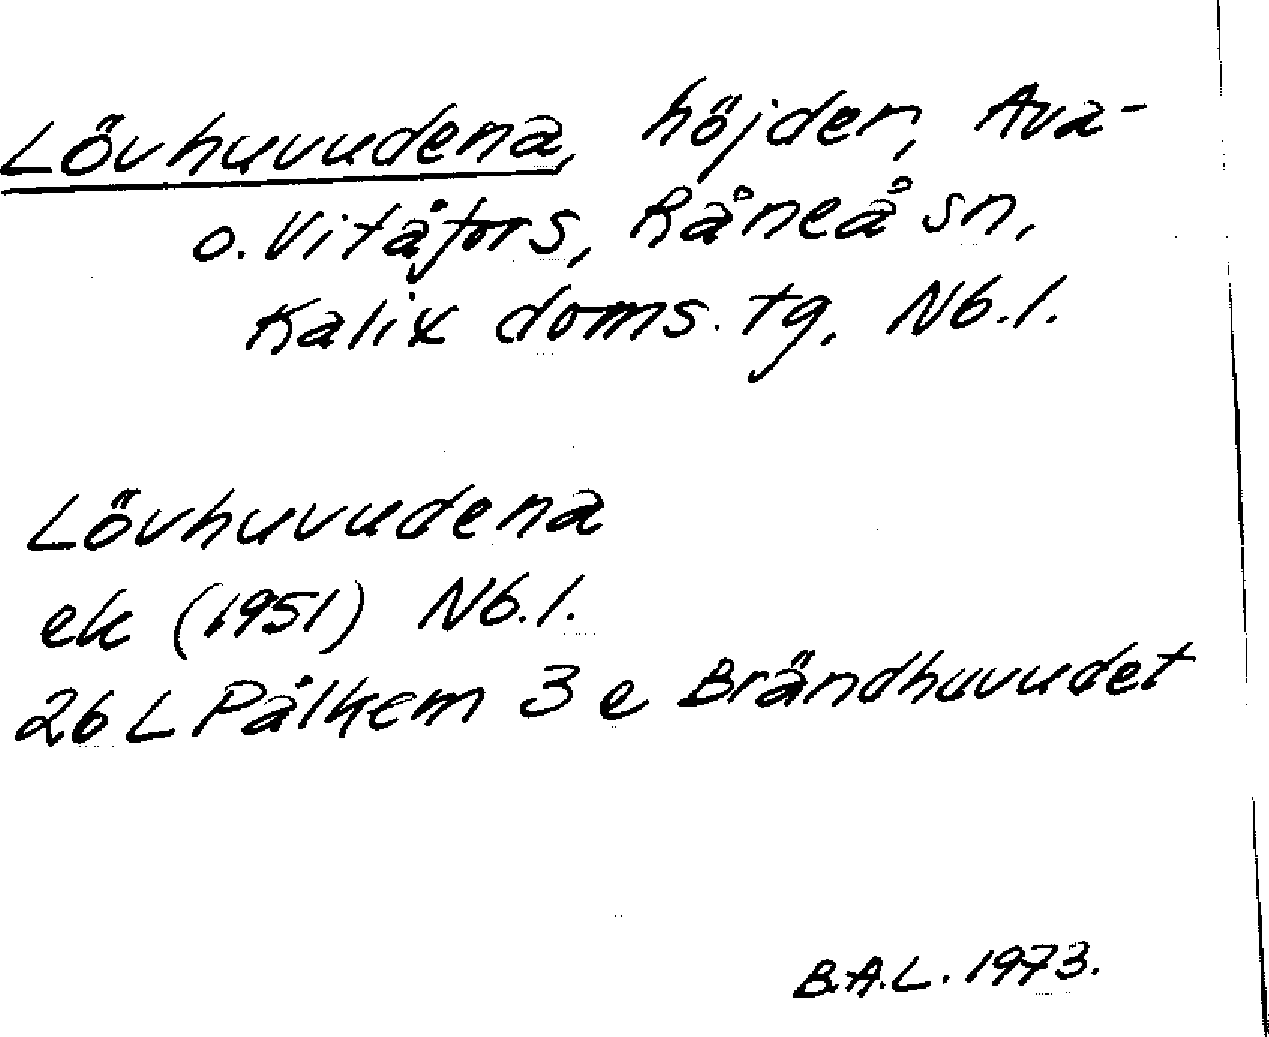 Lövhuvudena, höjder, Ava-
o. Vitåfors, Råneå sn,
Kalix doms. tg, Nb. l.
Lövhuvudena
ek (1951) Nb. l.
26 L Pålkem 3 e Brändhuvudet
B.A.L. 1973.